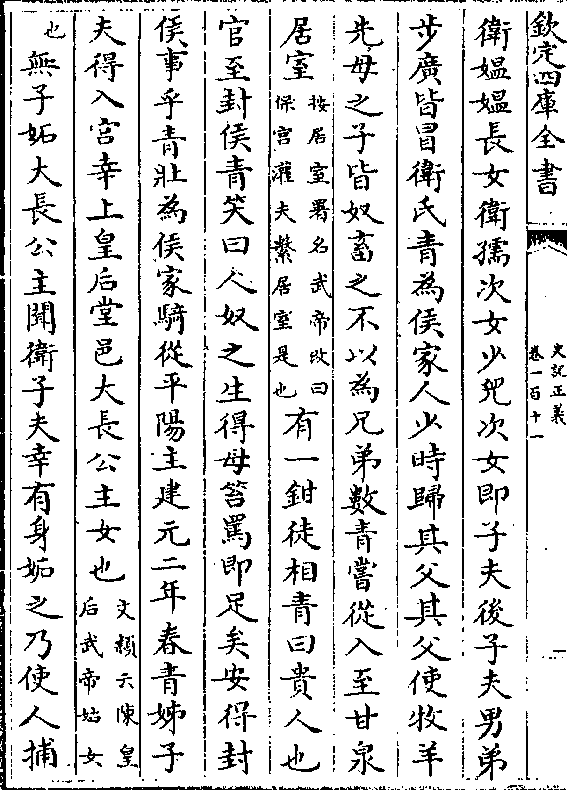 欽定四庫全書
史記正義
卷一百十一
一
衛媼媼長女衛孺次女少兒次女即子夫後子夫男弟
步廣皆冒衛氏青為侯家人少時歸其父其父使牧羊
先母之子皆奴畜之不以為兄弟數青嘗從入至甘泉
居室按居室署名武帝改曰保宮灌夫繫居室是也有一鉗徒相青曰貴人也
官至封侯青笑曰人奴之生得母笞罵即足矣安得封
侯事乎青壯為侯家騎從平陽主建元二年春青姊子
夫得入宮幸上皇后堂邑大長公主女也文穎云陳皇后武帝姑女
也無子妬大長公主聞衛子夫幸有身妬之乃使人捕